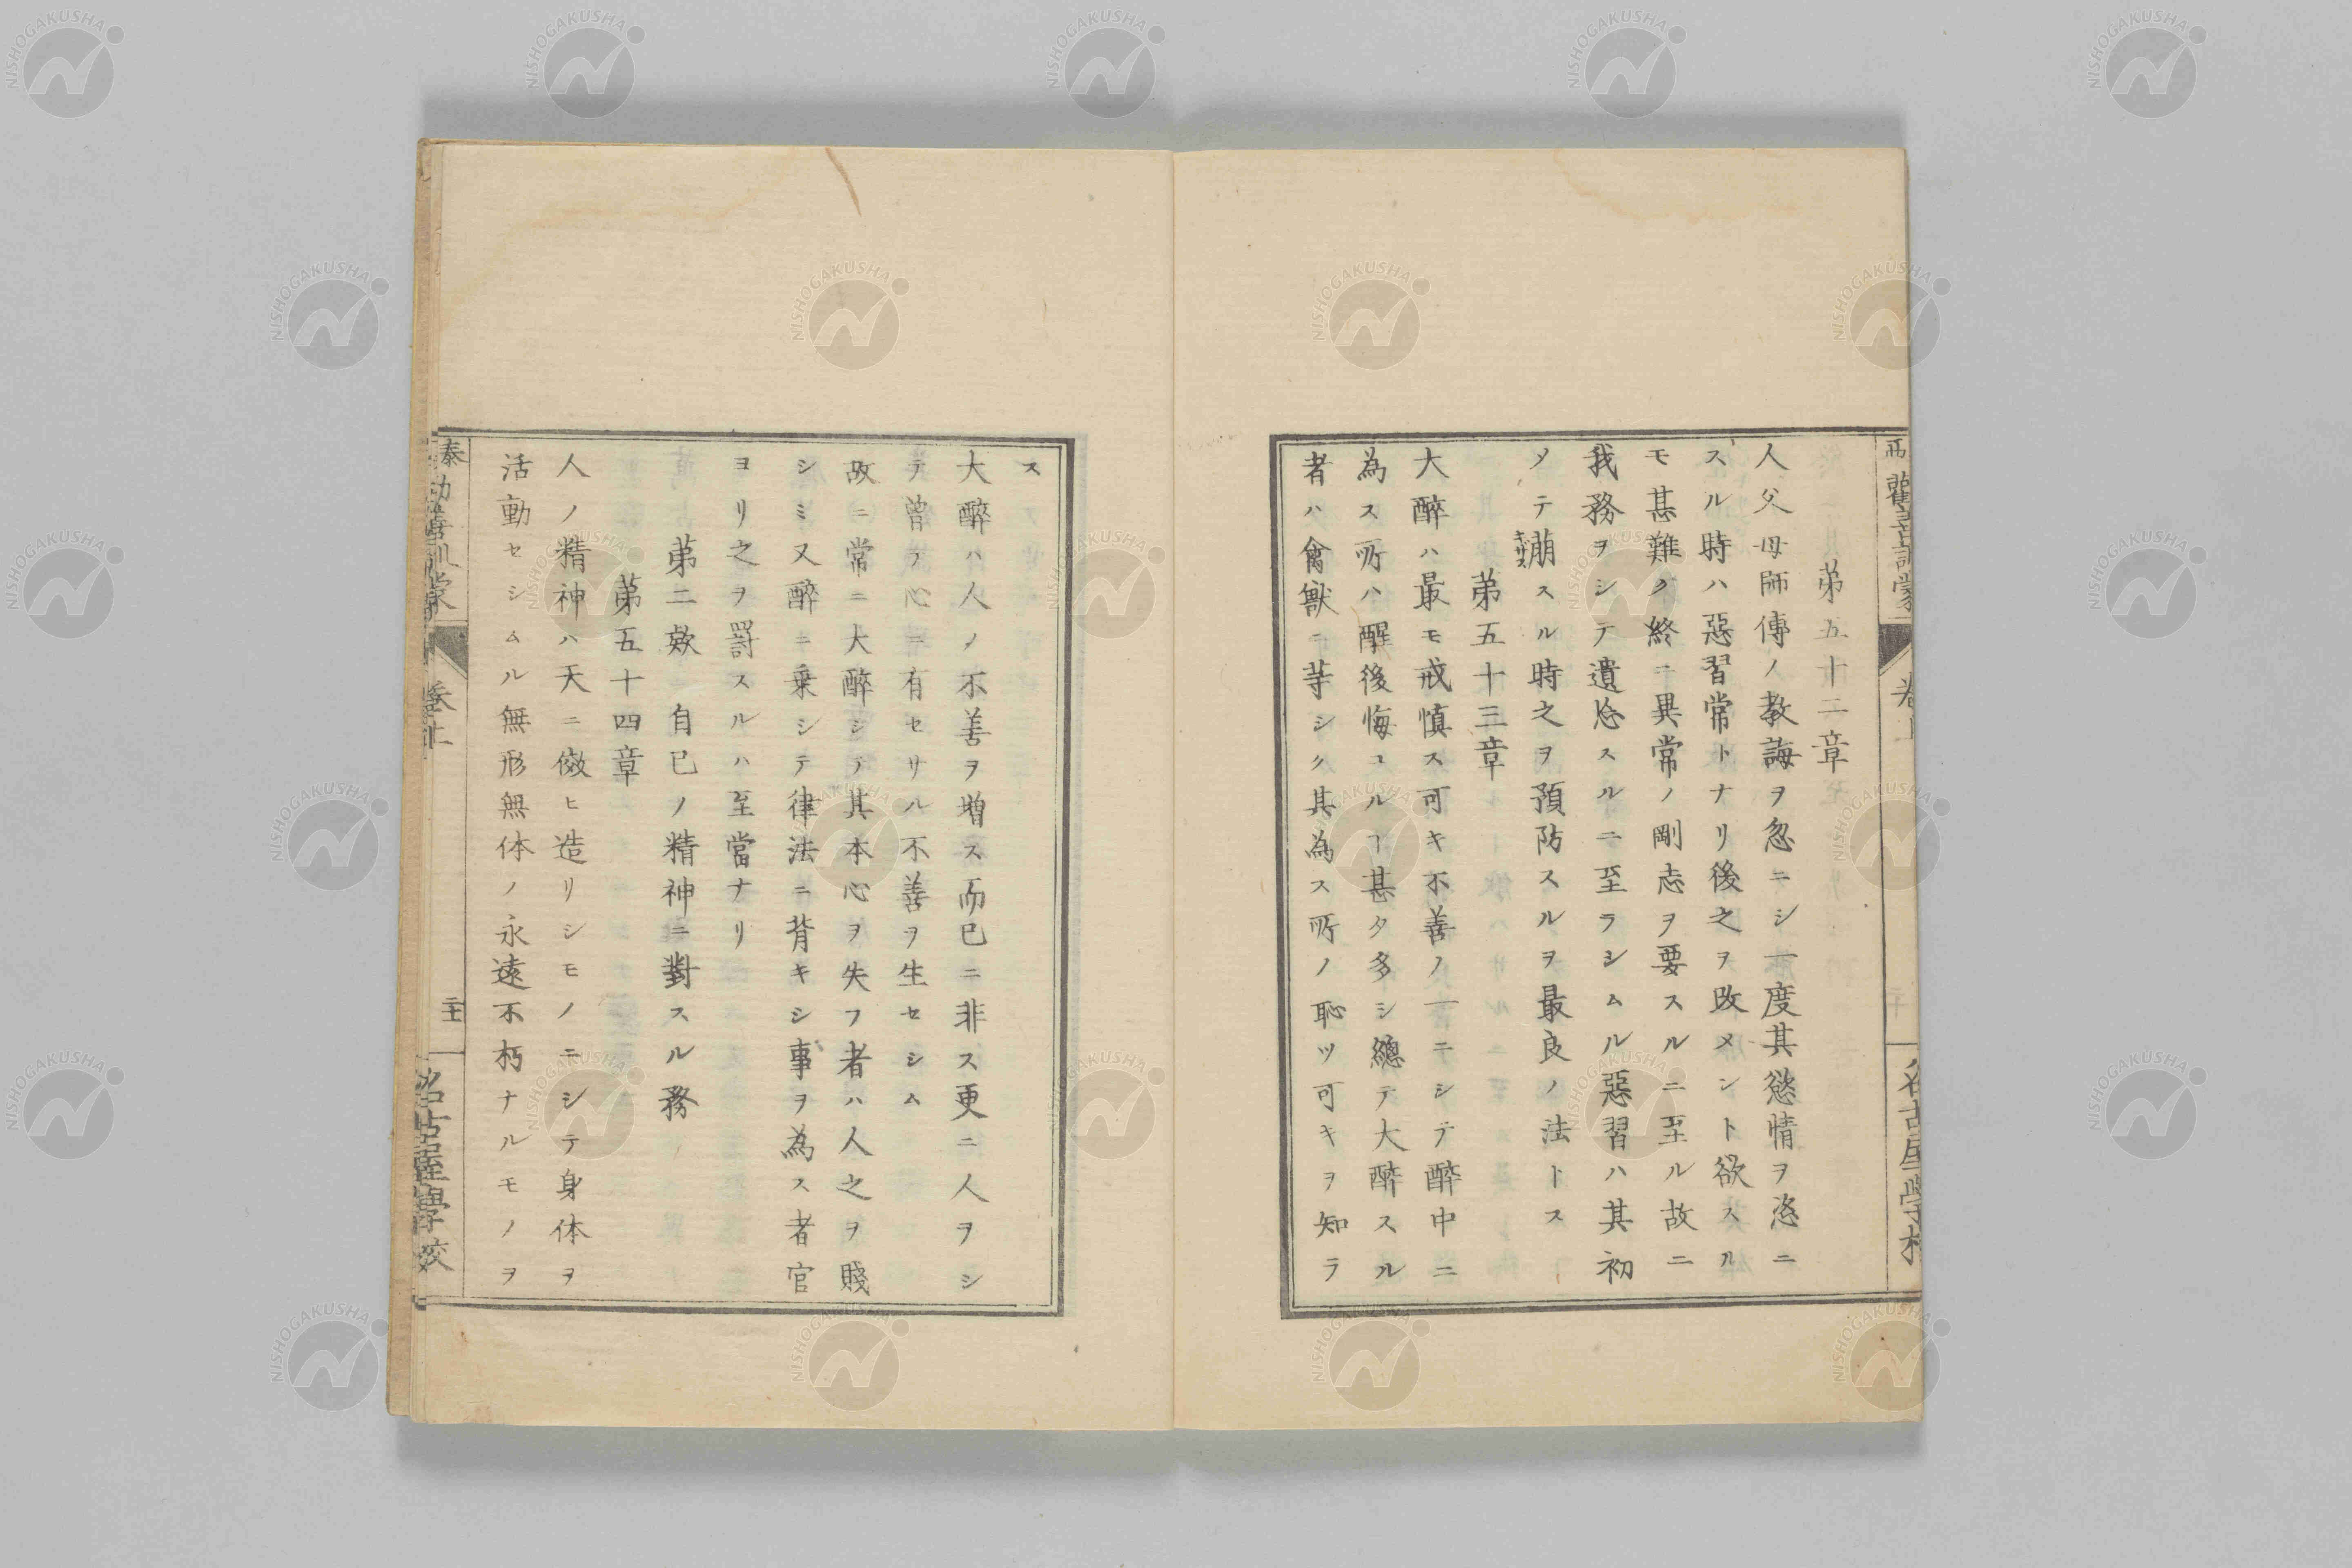 第五十二章
人父母師傳ノ教誨ヲ忽ニシ一度其慾情ヲ恣ニ
スル時ハ惡習常トナリ後之ヲ改メント欲スル
モ甚難ク終ニ異常ノ剛志ヲ要スルニ至ル故ニ
我務ヲシテ遺忩スルニ至ラシムル惡習ハ其初
メテ萠スル時之ヲ預防スルヲ最良ノ法トス
キザス
第五十三章
大醉ハ最モ戒慎ス可キ不善ノ一ニシテ醉中ニ
為ス所ハ醒後悔ユルヿ甚タ多シ總テ大醉スル
者ハ禽獸ニ等シク其為ス所ノ恥ツ可キヲ知ラ
卷上
ス
大醉ハ人ノ不善ヲ増ス而已ニ非ス更ニ人ヲシ
テ曽テ心ニ有セサル不善ヲ生セシム
故ニ常ニ大醉シテ其本心ヲ失フ者ハ人之ヲ賤
シミ又醉ニ乗シテ律法ニ背キシ事ヲ為ス者官
ヨリ之ヲ罰スルハ至當ナリ
第二欵 自己ノ精神ニ對スル務
第五十四章
人ノ精神ハ天ニ倣ヒ造リシモノニシテ身体ヲ
活動セシムル無形無体ノ永遠不朽ナルモノヲ
泰
名古屋學校
NISHOGAKUSHA